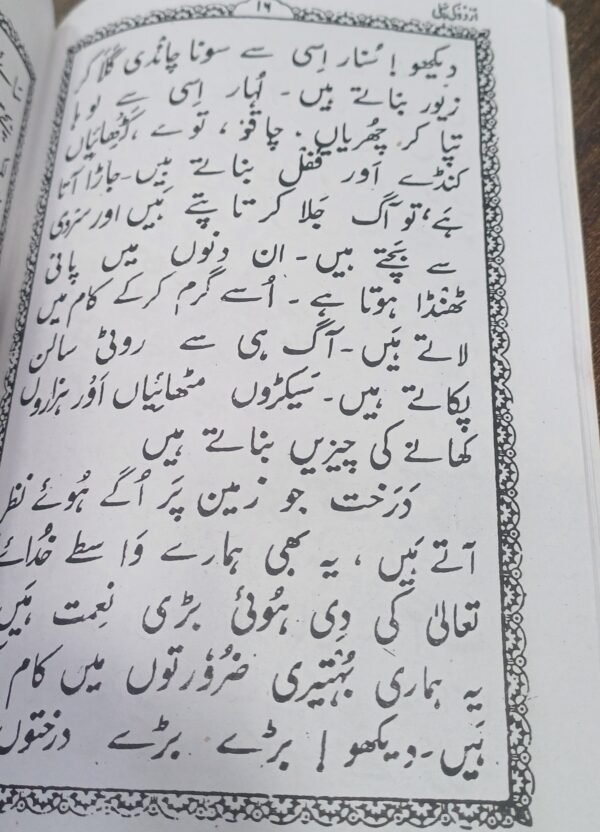 ۱۶
دیکھو ! سُنار اِسی سے سونا چاندی گلا کر
زیور بناتے ہیں۔ لُہار اِسی سے لوہا
تپا کر چھُریاں، چاقو، توے، کڑھائیاں
کنڈے اَور قفل بناتے ہیں۔ جاڑا آتا
ہَے، تو آگ جَلا کر تاپتے ہَیں اور سَردی
سے بَچتے ہیں۔ ان دنوں میں پانی
ٹھنڈا ہوتا ہے۔ اُسے گرم کرکے کام میں
لاتے ہَیں۔ آگ ہی سے روٹی سالن
پکاتے ہیں۔ سَیکڑوں مٹھائیاں اَور ہزاروں
کھانے کی چیزیں بناتے ہیں
دَرَخت جو زمین پَر اُگے ہُوئے نظر
آتے ہَیں، یہ بھی ہمارے وَاسطے خُدائے
تعالیٰ کی دِی ہُوئی بڑی نِعمت ہَیں
یہ ہماری بُہتیری ضَرُورتوں میں کام
ہَیں۔ دیکھو ! بڑے بڑے درختوں